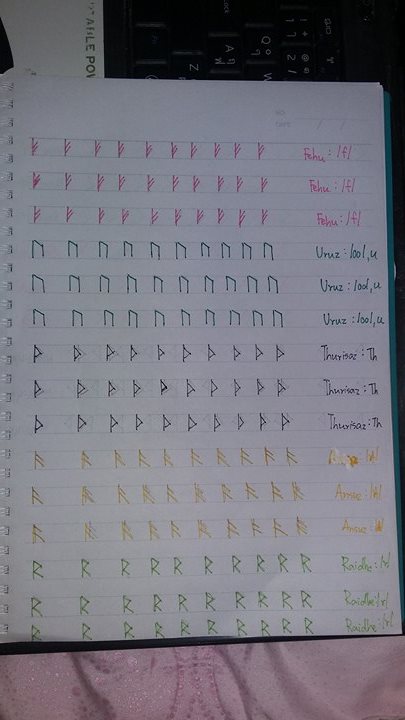 ᚠ ᚠ ᚠ ᚠ ᚠ ᚠ ᚠ ᚠ ᚠ ᚠ Fehu : /f/
ᚠ ᚠ ᚠ ᚠ ᚠ ᚠ ᚠ ᚠ ᚠ ᚠ Fehu : /f/
ᚠ ᚠ ᚠ ᚠ ᚠ ᚠ ᚠ ᚠ ᚠ ᚠ Fehu : /f/
ᚢ ᚢ ᚢ ᚢ ᚢ ᚢ ᚢ ᚢ ᚢ ᚢ Uruz : /oo/, u
ᚢ ᚢ ᚢ ᚢ ᚢ ᚢ ᚢ ᚢ ᚢ ᚢ Uruz : /oo/, u
ᚢ ᚢ ᚢ ᚢ ᚢ ᚢ ᚢ ᚢ ᚢ ᚢ Uruz : /oo/, u
ᚦ ᚦ ᚦ ᚦ ᚦ ᚦ ᚦ ᚦ ᚦ ᚦ Thurisaz : Th
ᚦ ᚦ ᚦ ᚦ ᚦ ᚦ ᚦ ᚦ ᚦ ᚦ Thurisaz : Th
ᚦ ᚦ ᚦ ᚦ ᚦ ᚦ ᚦ ᚦ ᚦ ᚦ Thurisaz : Th
ᚨ ᚨ ᚨ ᚨ ᚨ ᚨ ᚨ ᚨ ᚨ ᚨ
ᚨ ᚨ ᚨ ᚨ ᚨ ᚨ ᚨ ᚨ ᚨ ᚨ
ᚨ ᚨ ᚨ ᚨ ᚨ ᚨ ᚨ ᚨ ᚨ ᚨ
ᚱ ᚱ ᚱ ᚱ ᚱ ᚱ ᚱ ᚱ ᚱ ᚱ Raidhe : /r/
ᚱ ᚱ ᚱ ᚱ ᚱ ᚱ ᚱ ᚱ ᚱ ᚱ Raidhe : /r/
ᚱ ᚱ ᚱ ᚱ ᚱ ᚱ ᚱ ᚱ ᚱ ᚱ Raidhe : /r/